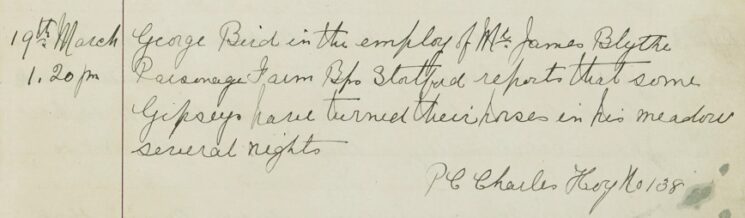 19th March George Bird in the employ of Mr. James Blythe
1.20 pm Parsonage Farm Bps Stortford reports that some
Gipseys have turned their horses in his meadow
several nights
PC Charles Hoy No 138